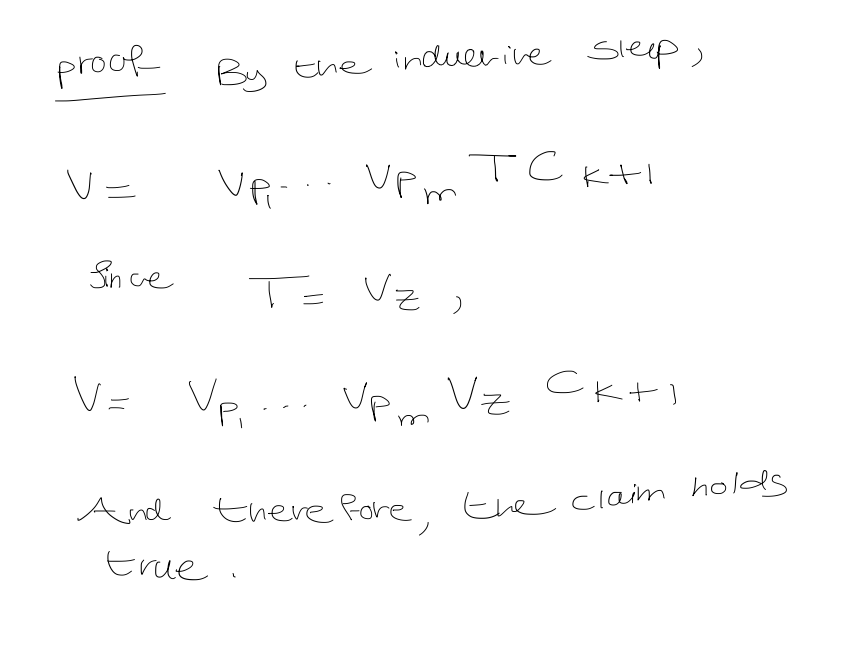 proof By the inductive step,
V = V_{P_1} ... V_{P_m} T C_{k+1}
Since T = V_Z ,
V = V_{P_1} ... V_{P_m} V_Z C_{k+1}
And therefore, the claim holds
true.